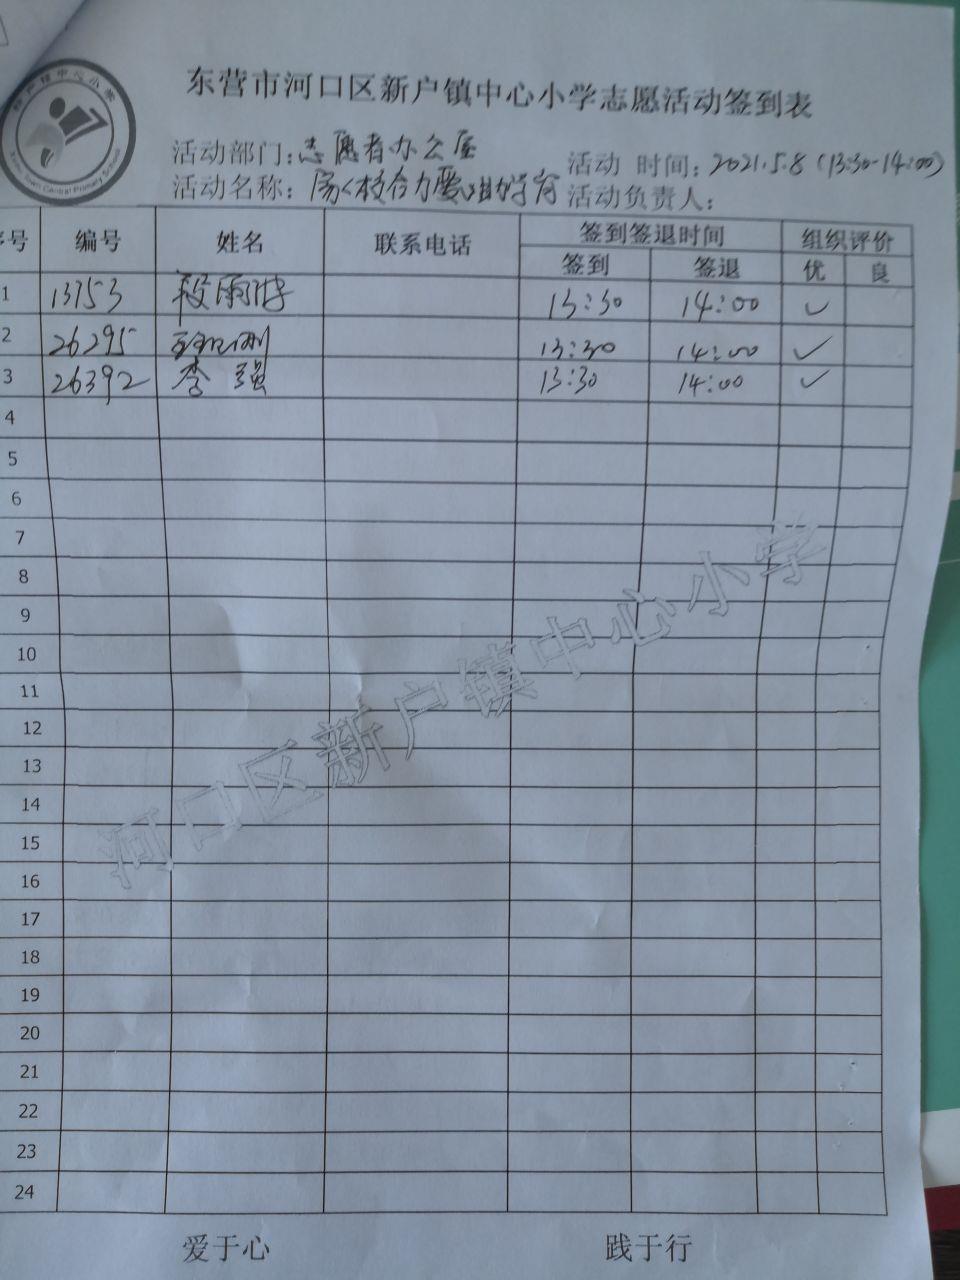 东营市河口区新户镇中心小学志愿活动签到表
活动部门：志愿者办公室 活动 时间：2021.5.8（13:30-14:00）
活动名称： 活动负责人：
序号 编号 姓名 联系电话 签到签退时间 组织评价
签到 签退 优 良
1 13753 段雨 13:30 14:00 ✓
2 26295 13:30 14:00 ✓
3 26392 李强 13:30 14:00 ✓
4
5
6
7
8
9
10
11
12
13
14
15
16
17
18
19
20
21
22
23
24
河口区新户镇中心小学
爱于心 践于行